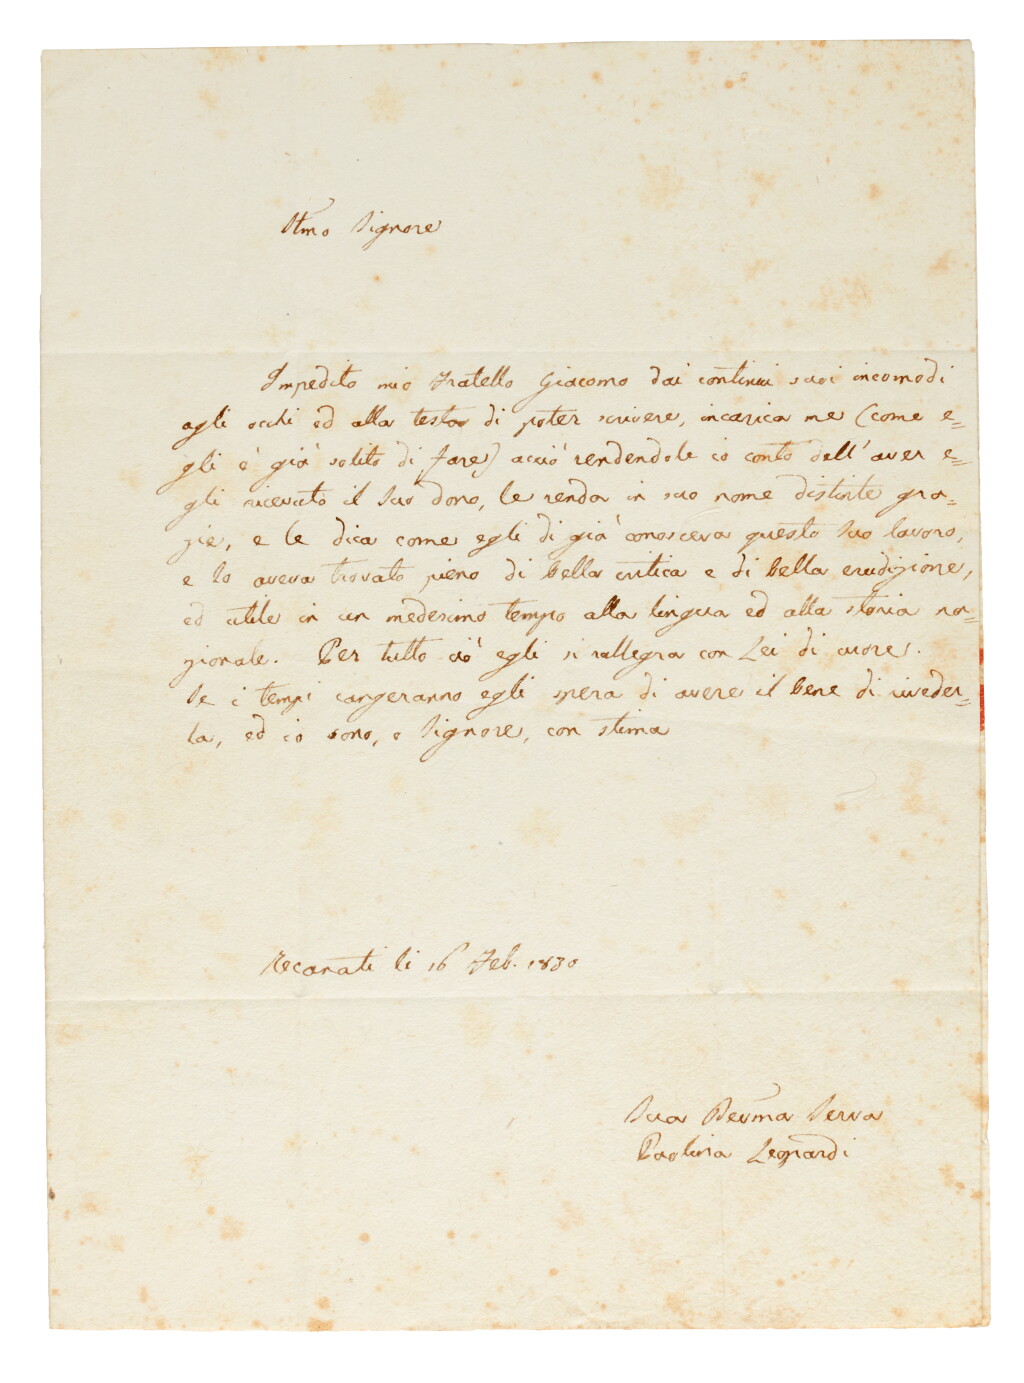 Illmo Signore
Impedito mio Fratello Giacomo dai continui suoi incomodi
agli occhi ed alla testa di poter scrivere, incarica me (come e=
gli è già solito di fare) acciò rendendole io conto dell'aver e=
gli ricevuto il Suo dono, le renda in suo nome distinte gra=
zie, e le dica come egli di già conosceva questo Suo lavoro,
e lo aveva trovato pieno di bella critica e di bella erudizione,
ed utile in un medesimo tempo alla lingua ed alla storia na=
zionale. Per tutto ciò egli si rallegra con Lei di cuore.
Se i tempi cangeranno egli spera di avere il bene di riveder=
la, ed io sono, o Signore, con stima
Recanati li 16 Feb. 1830
Sua Devma Serva
Paolina Leopardi